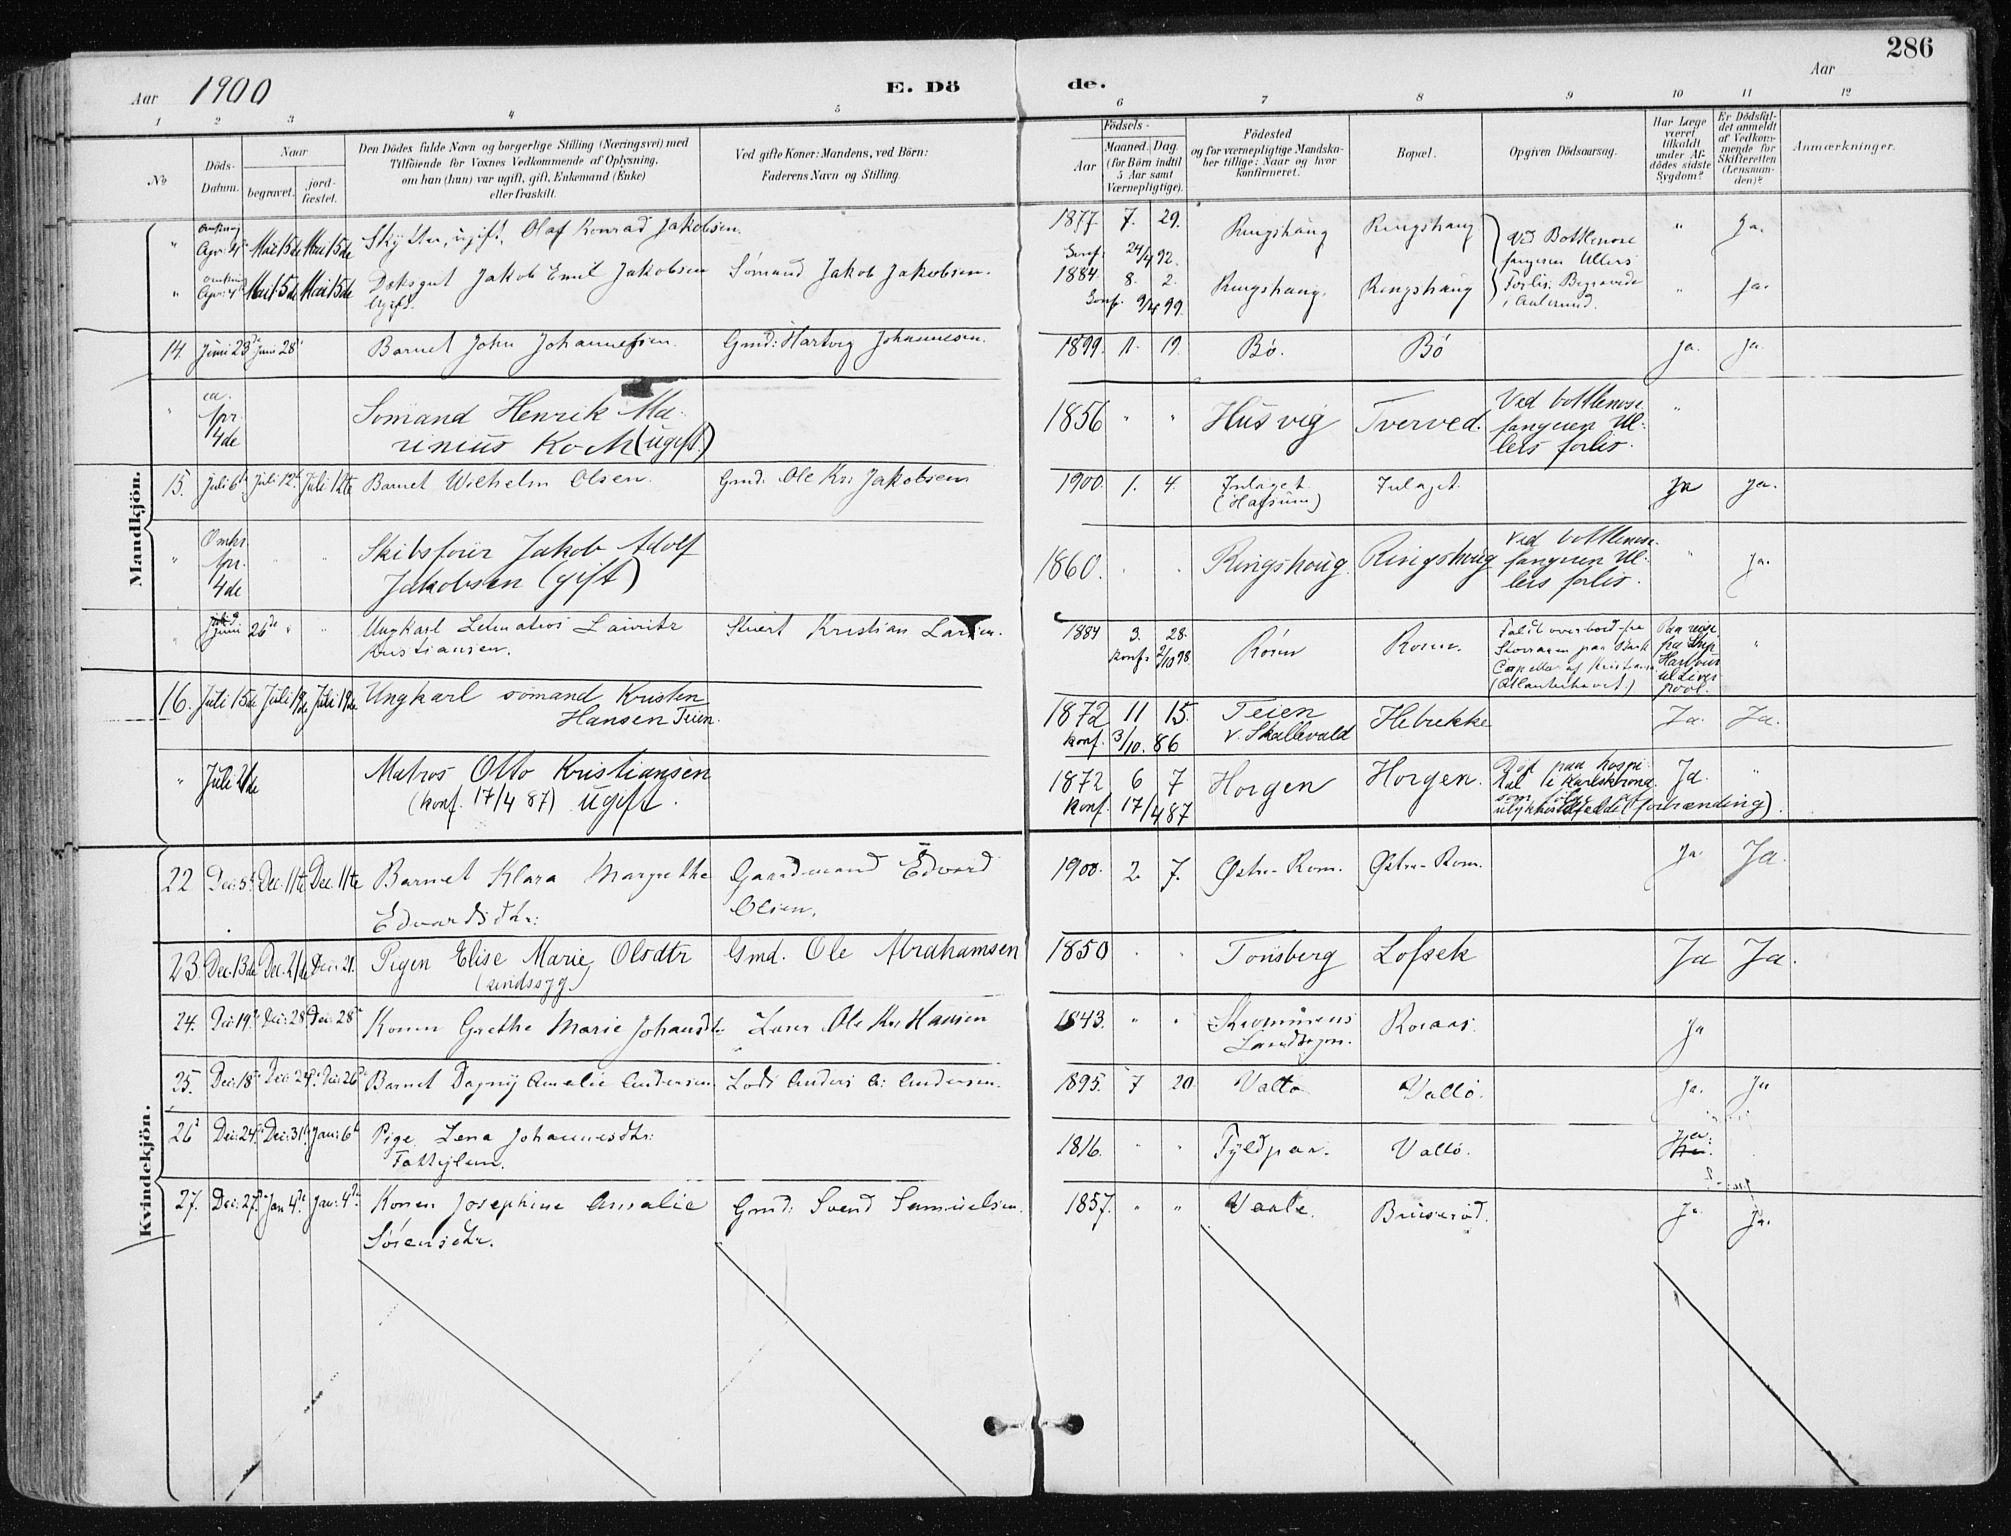 286
Aar 1900 E. Dö de. Aar
1 2 3 4 5 6 7 8 9 10 11 12
No
Döds-Datum.
Naar
begravet.
jord-fæstet.
Den Dödes fulde Navn og borgerlige Stilling (Næringsvei) med
Tilföiende for Voxnes Vedkommende af Oplysning,
om han (hun) var ugift, gift, Enkemand (Enke)
eller fraskilt.
Ved gifte Koner: Mandens, ved Börn:
Faderens Navn og Stilling.
Födsels-
Aar
Maaned. Dag.
(for Börn indtil
5 Aar samt
Værnepligtige).
Födested
og for værnepligtige Mandska-
ber tillige: Naar og hvor
Konfirmeret.
Bopæl.
Opgiven Dödsaarsag.
Har Læge
været
tilkaldt
under Af-
dödes sidste
Sygdom?
Er Dödsfal-
det anmeldt
af Vedkom-
mende for
Skifteretten
(Lensman-
den)?
Anmærkninger.
Mandkjön.
" Apr. 4de Mai 15de Mai 15de Skytter, ugift, Olaf Konrad Jakobsen. 1877. 7. 29. Ringshaug Ringshaug Ved Bottlenose " Ja.
Conf. 24/4 92. fangeren Ullers
" Apr. 4de Mai 15de Mai 15de Dæksgut Jakob Emil Jakobsen Sømand Jakob Jakobsen. 1884. 8. 2. Ringshaug. Ringshaug Forlis. Begravede " Ja.
Ugift. Conf. 9/4 99.
14. Juni 23de Juni 28de Barnet John Johannesen. Gmd: Hartvig Johannesen. 1899. 11. 19. Bö. Bö Ja. Ja.
" ca. Apr. 4de Sömand Henrik Ma-
rinius Koch (ugift.) 1856 " " Husvig Tverved. Ved bottlenose-
fangeren Ul-
lers forlis. "
15. Juli 6te Juli 12te Juli 12te Barnet Wilhelm Olsen. Gmd: Ole Kr: Jakobsen 1900. 1. 4. Inlaget Inlaget. Ja Ja.
" Omkr. Apr. 4de " " Skibsförer Jakob Adolf
Jakobsen (gift) 1860. " " Ringshoug. Ringshoug Ved bottlenose-
fangeren Ul-
lers forlis. " Ja.
" Juni 26de " " Ungkarl Letmatros Lauritz
Kristiansen. Stuert Kristian Larsen. 1884 3. 28.
konf. 2/10 98. Rören Roren. Faldt overbord fra
Storraaen paa Bark
Capella af Kristiania
(Atlanterhavet) Paa reise
fra Ship
Harbour
til Liver-
pool. "
16. Juli 15de Juli 19de Juli 19de Ungkarl sömand Kristen
Hansen Teien. 1872 11 15.
konf. 3/10. 86 Teien
v. Skallevald Hebekke Ja. Ja.
" Juli 21de Matros Otto Kristiansen
(konf. 17/4 87) ugift. 1872 6 7
konf. 17/4 87 Horgen Horgen. Död paa hospi-
tal i Karlskrona
som fölge af
ulykkestilfælde (forbrænding). Ja. "
Kvindekjön.
22 Dec: 5te Dec. 11te Dec. 11te Barnet Klara Margrethe
Edvardsdtr: Gaardmand Edvard
Olsen. 1900. 2. 7. Østre-Rom. Østre-Rom. Ja Ja.
23. Dec. 13de Dec. 21de Dec: 21. Pigen Elise Marie Olsdtr
(sindssyg) Gmd. Ole Abrahamsen 1850 " " Tönsberg Lofsek Ja Ja.
24. Dec: 19de Dec: 28de Dec. 28de Konen Grethe Marie Johansdtr Ole Kr. Hansen 1843. " " Strømmens
Landsogn. Roraas. Ja
25. Dec: 18de Dec: 24de Dec: 26de Barnet Dagny Amalie Andersen Lods Anders A: Andersen. 1895. 7 20 Vallö Vallö. Ja. Ja
26 Dec: 24de Dec: 31te Jan: 6te Pige. Lena Johannesdtr:
Fattiglem. 1816. " " Fyldpaa. Vallö. Ja.
27. Dec: 27de Jan 4de Jan: 4de Konen Josephine Amalie
Sörensdtr. Gmd: Svend Samuelsen. 1857. " " Vaale. Bruserød. Ja Ja.